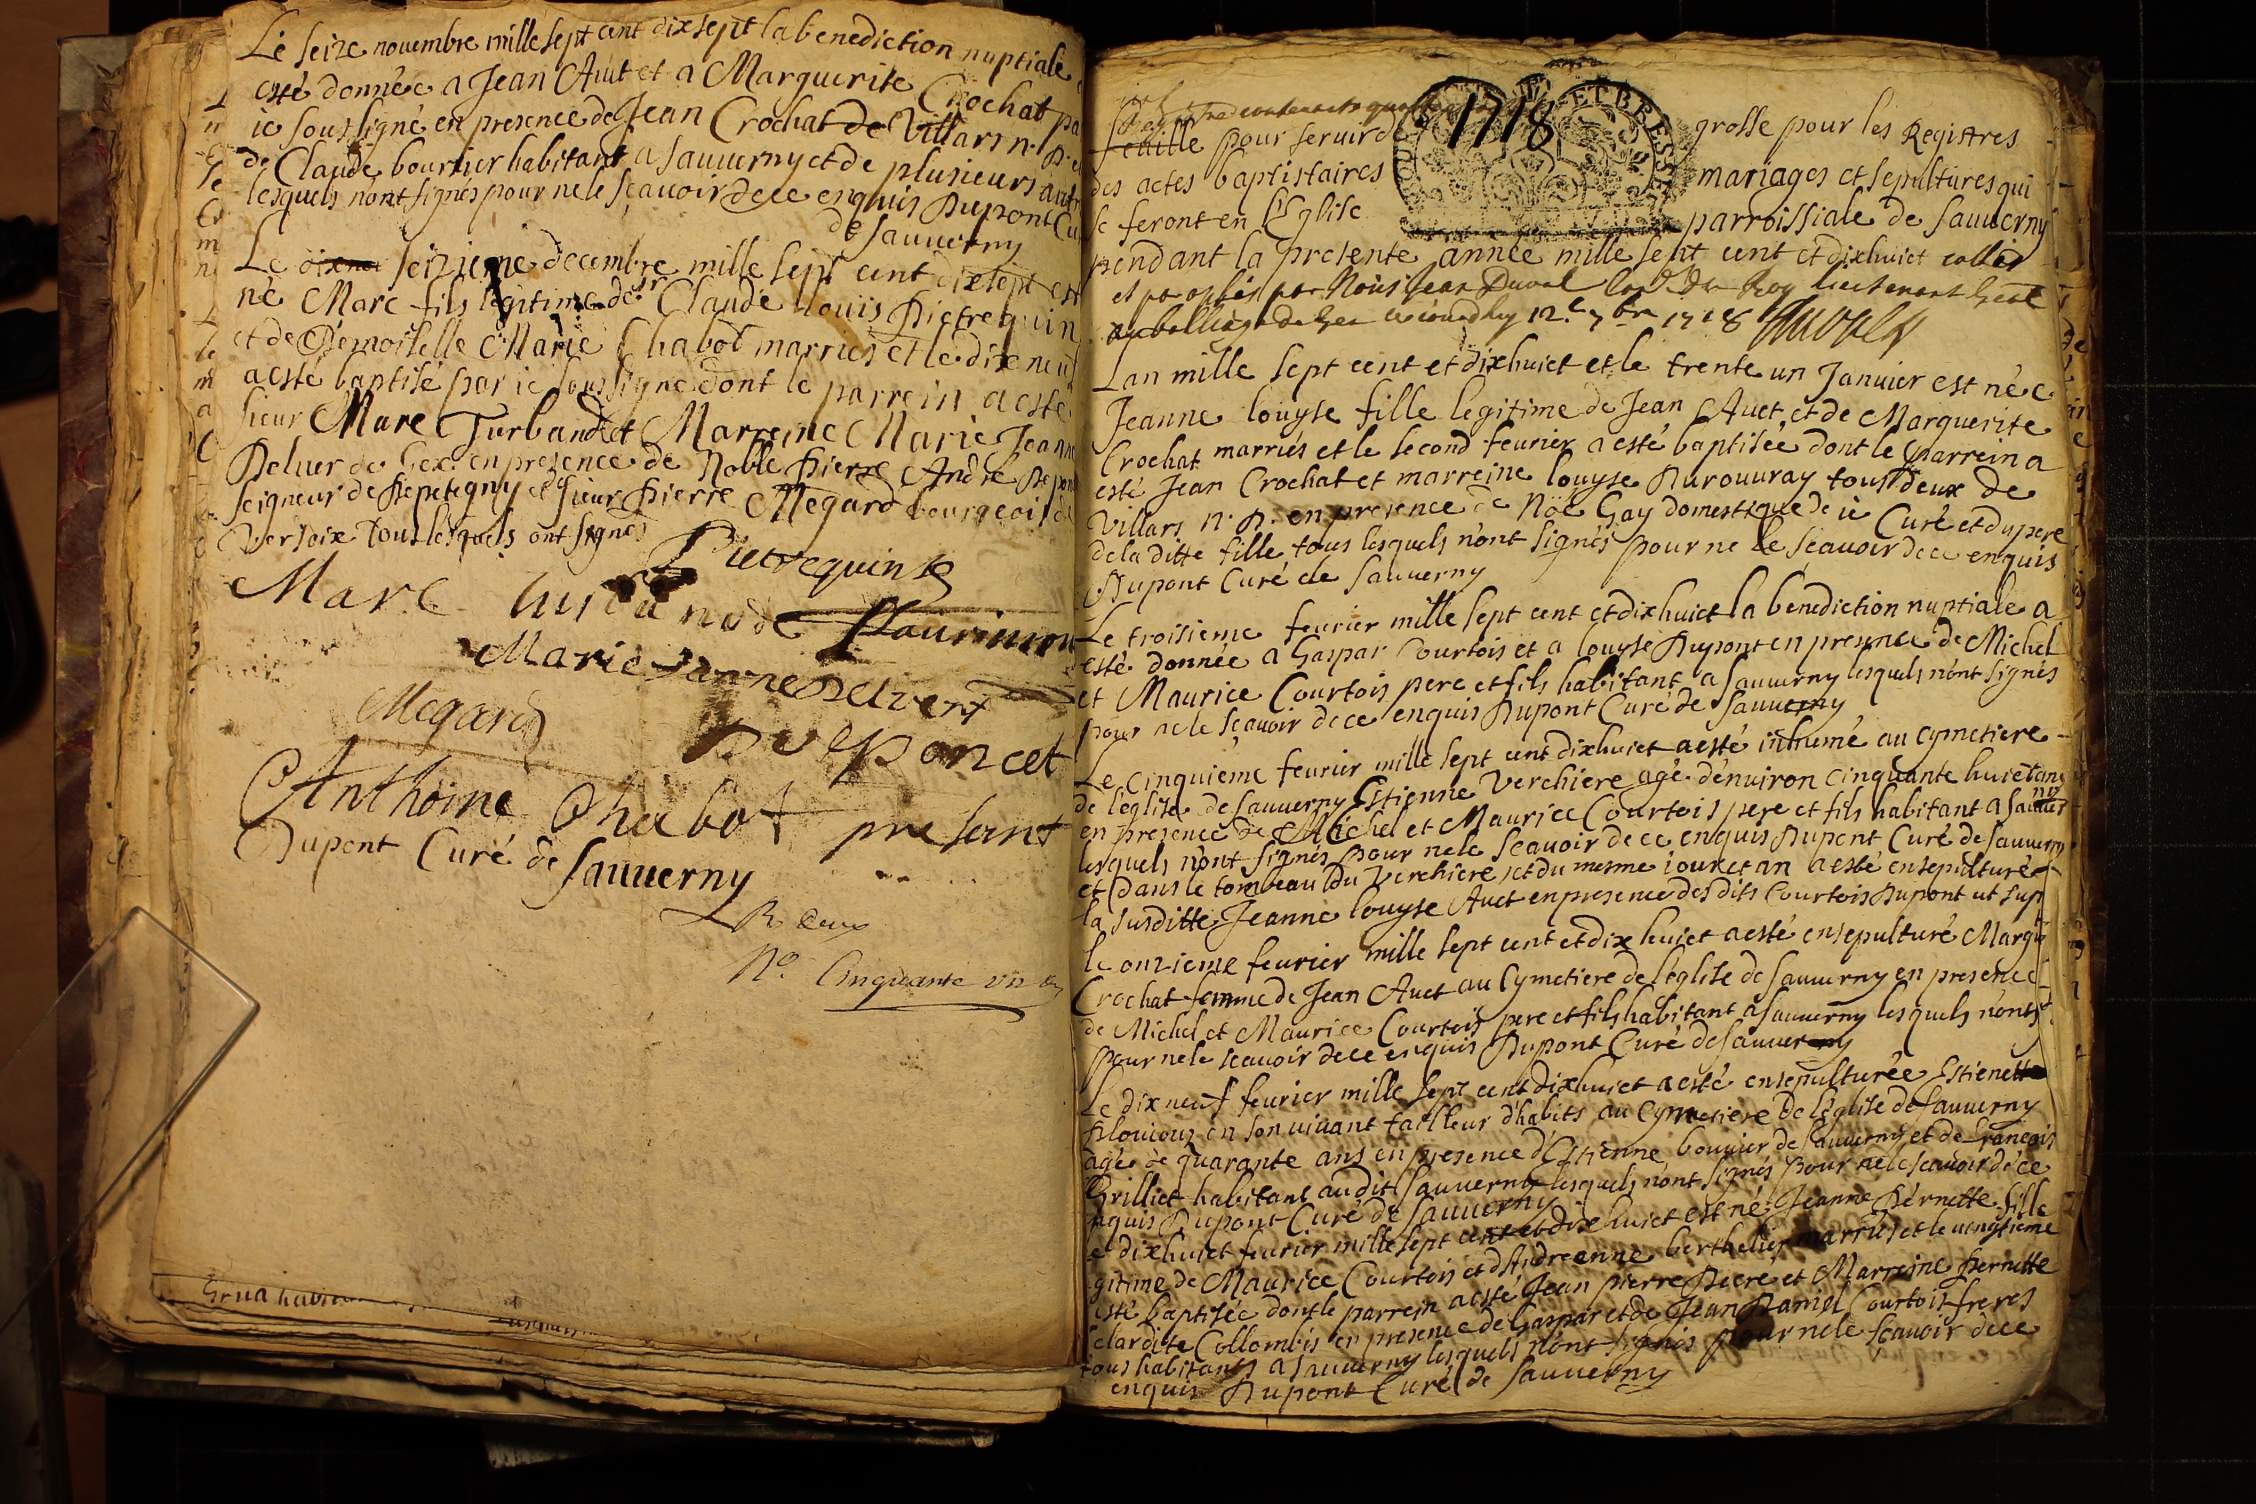 Le seize novembre mille sept cent dixsept la benediction nuptiale
esté donnée a Jean Avet et a Marguerite Crochat pa
ie soussigné en presence de Jean Crochat de Villars n. D.
de Claude bouvier habitant a Sauverny et de plusieurs autr
lesquels n'ont signés pour ne le sçavoir de ce enquis Dupont Cu
de Sauverny
Le seizieme decembre mille sept cent dixsept est
né Marc fils legitime de Sr Claude Louis Pietrequin
et de Demoiselle Marie Chabot marriés et le dix neuf
a esté baptisé par ie soussigné dont le parrein a esté
sieur Marc Turband et Marreine Marie Jeanne
Deluer de Gex en presence de Noble Pierre André Depon
seigneur de Prepetegny et de sieur Pierre Megard bourgeois de
Versoix tous lesquels ont signés
Pietrequin
Marc
Marie Janne Delvert
Megard
De Poncet
Anthoine Chabot presant
Dupont Curé de Sauverny
R deux
No. Cinquante un
1718
ET BRESSE
feuille pour servir de grosse pour les Registres
des actes baptistaires mariages et sepultures qui
se feront en l'Eglise parroissiale de Sauverny
pendant la presente année mille sept cent et dixhuict cottée
et par Nous Jean Duval du Roy Lieutenant
au balliage de Gex 12e 1718 Duval
Lan mille sept cent et dixhuict et le trente un Janvier est née
Jeanne louyse fille legitime de Jean Avet et de Marguerite
Crochat marriés et le second fevrier a esté baptisée dont le parrein a
esté Jean Crochat et marreine louyse Durouvray tous deux de
Villars n. D. en presence de Noë Gay domestique de ie Curé et du pere
de la ditte fille tous lesquels n'ont signés pour ne le sçavoir de ce enquis
Dupont Curé de Sauverny
Le troisieme fevrier mille sept cent et dixhuict la benediction nuptiale a
esté donnée a Gaspar Courtois et a louyse Dupont en presence de Michel
et Maurice Courtois pere et fils habitant a Sauverny lesquels n'ont signés
pour ne le sçavoir de ce enquis Dupont Curé de Sauverny
Le cinquieme fevrier mille sept cent dixhuict a esté inhumé au cymetiere
de l'eglise de Sauverny Estienne Verchiere agé d'environ cinquante huict ans
en presence de Michel et Maurice Courtois pere et fils habitant a Sauver
lesquels n'ont signés pour ne le sçavoir de ce enquis Dupont Curé de Sauverny
et dans le tombeau du Verchiere et du mesme iour et an a esté ensepulturé
la susditte Jeanne louyse Avet en presence des dits Courtois Dupont ut sup
le onzieme fevrier mille sept cent et dix huict a esté ensepulturé Margu
Crochat femme de Jean Avet au Cymetiere de l'eglise de Sauverny en presence
de Michel et Maurice Courtois pere et fils habitant a Sauverny lesquels n'ont
pour ne le sçavoir de ce enquis Dupont Curé de Sauverny
Le dix neuf fevrier mille sept cent dixhuict a esté ensepulturée Estienette
en son vivant tailleur d'habits au Cymetiere de l'eglise de Sauverny
agé de quarante ans en presence d'Estienne bouvier de Sauverny et de François
Grilliet habitant au dit Sauverny lesquels n'ont signés pour ne le sçavoir de ce
nquis Dupont Curé de Sauverny
e dixhuict fevrier mille sept cent et dix huict est né Jeanne Pernette fille
gitime de Maurice Courtois et d'Andreanne berthelier marriés et le vingtieme
esté baptisée dont le parrein a esté Jean Pierre Decre et Marreine Pernette
Collombés en presence de Gaspar et de Jean Daniel Courtois freres
tous habitants a Sauverny lesquels n'ont signés pour ne le sçavoir de ce
enquis Dupont Curé de Sauverny